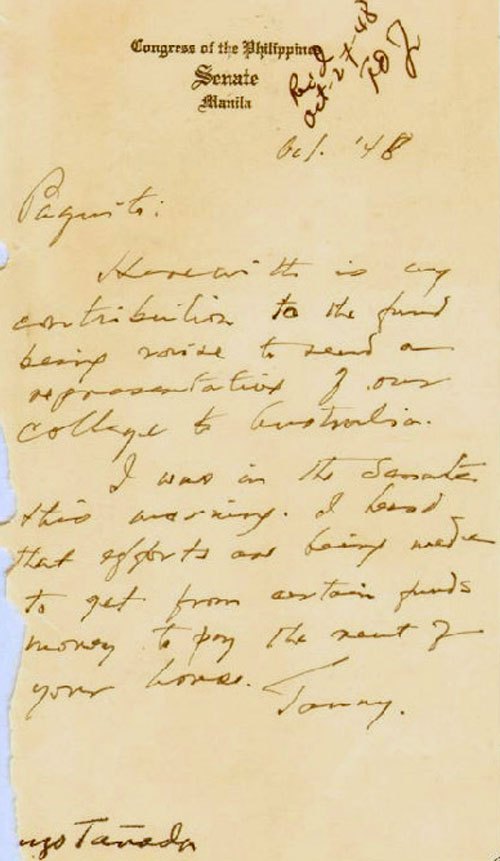 Congress of the Philippines
Senate
Manila
Rec'd
Oct-27-48
Oct. '48
Paquito:
Herewith is my
contribution to the fund
being raise to send a
representative of our
college to Australia.
I was in the Senate
this morning. I heard
that efforts are being made
to get from certain funds
money to pay the rent of
your house.
Tanny.
nzo Tañada